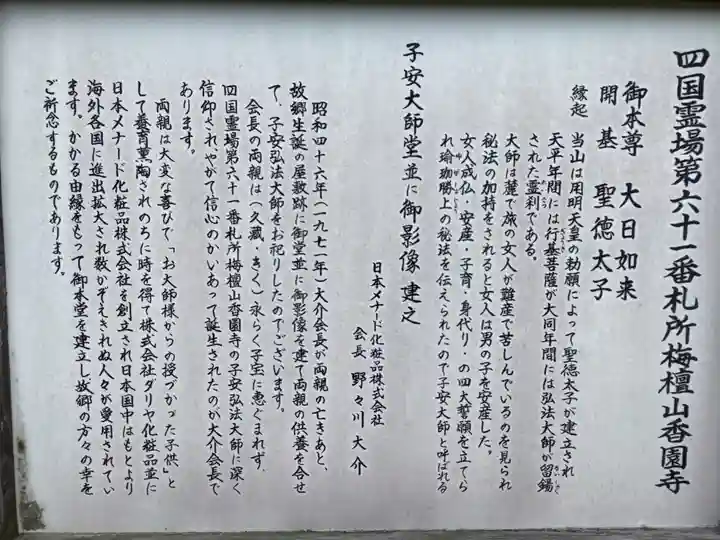 四国霊場第六十一番札所梅檀山香園寺
御本尊 大日如来
開基 聖徳太子
縁起 当山は用明天皇の勅願によって聖徳太子が建立され
天平年間には行基菩薩が大同年間には弘法大師が留錫
された霊刹である。
大師は麓で旅の女人が難産で苦しんでいるのを見られ
秘法の加持をされると女人は男の子を安産した。
女人成仏・安産・子育・身代り・の四大誓願を立てら
れ瑜珈勝上の秘法を伝えられたので子安大師と呼ばれる
子安大師堂並に御影像 建之
日本メナード化粧品株式会社
会長 野々川 大介
昭和四十六年(一九七一年)大介会長が両親の亡きあと、
故郷生誕の屋敷跡に御堂並に御影像を建て両親の供養を合せ
て、子安弘法大師をお祀りしたのでございます。
会長の両親は(久蔵・きく)永らく子宝に恵ぐまれず、
四国霊場第六十一番札所梅檀山香園寺の子安弘法大師に深く
信仰されやがて信心のかいあって誕生されたのが大介会長で
あります。
両親は大変な喜びで「お大師様からの授づかった子供」と
して養育薫陶されのちに時を得て株式会社ダリヤ化粧品並に
日本メナード化粧品株式会社を創立され日本国中はもとより
海外各国に進出拡大され数かぞえきれぬ人々が愛用されてい
ます。かかる由縁をもって御本堂を建立し故郷の方々の幸を
ご祈念するものであります。